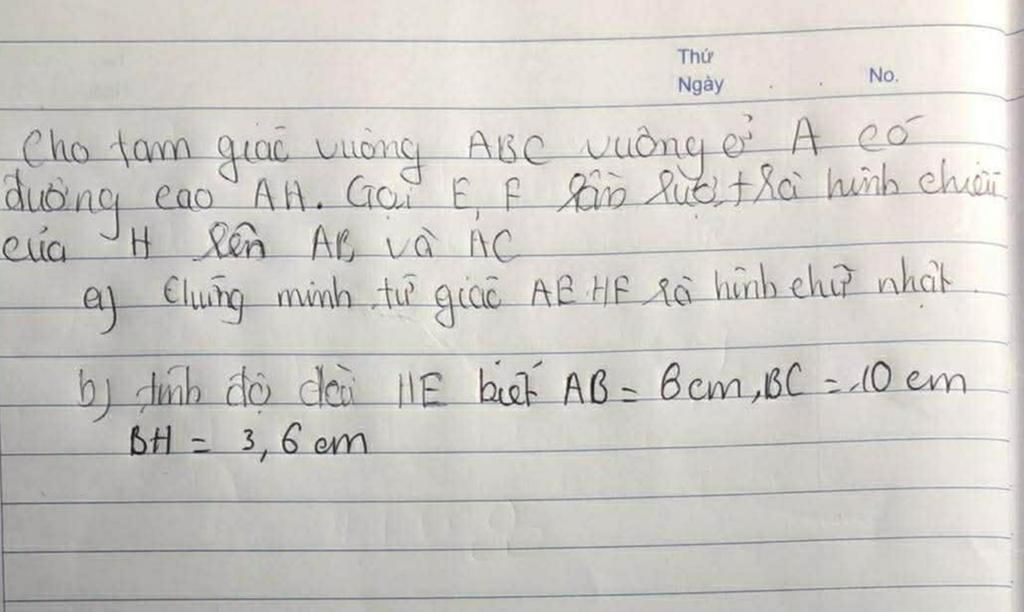 Thứ
Ngày . . No.
Cho tam giác vuông ABC vuông ở A có
đường cao AH. Gọi E, F lần lượt là hình chiếu
của H lên AB và AC
a) Chứng minh tứ giác AEHF là hình chữ nhật.
b) tính độ dài HE biết AB = 6cm, BC = 10 cm
BH = 3,6 cm